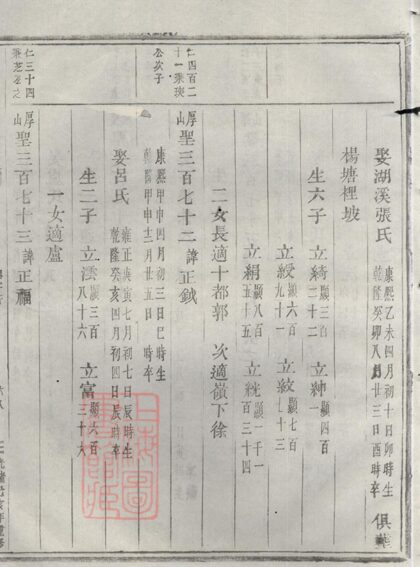 娶湖溪張氏 康熙乙未四月初十日卯時生
乾隆癸卯八月廿三日酉時卒 俱葬
楊塘裡坡
生六子 立綺 顯三百二十二 立紳 顯四百一
立綬 顯六百九十一 立紋 顯七百四十三
立絹 顯八百五十五 立統 顯一千一百三十四
二女長適十都郭 次適嶺下徐
仁四百二十一秉琰公次子
厚山 聖三百七十二諱正鉞
康熙甲申四月初三日巳時生
乾隆甲申十二月廿五日 時卒
娶呂氏 雍正庚寅七月初七日辰時生
乾隆癸亥四月初四日辰時卒
生二子 立法 顯三百八十六 立富 顯六百三十六
一女適盧
仁三十四秉芝公之
厚山 聖三百七十三諱正福
上海圖書館藏